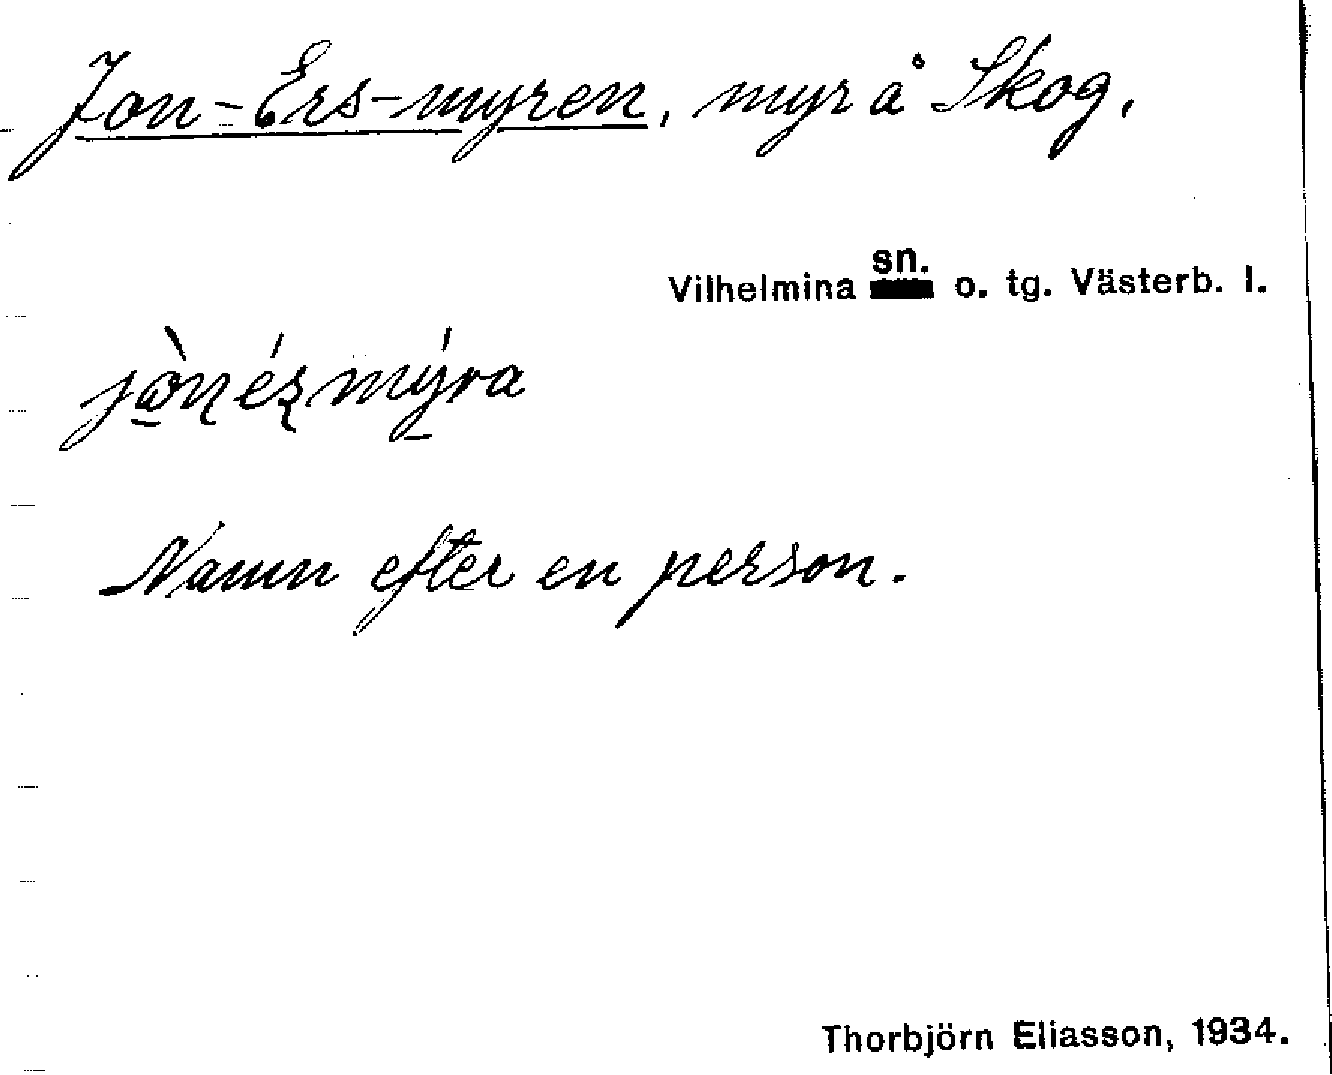 Jon-Ers-myren, myr å Skog.
Vilhelmina sn. o. tg. Västerb. l.
Namn efter en person.
Thorbjörn Eliasson, 1934.